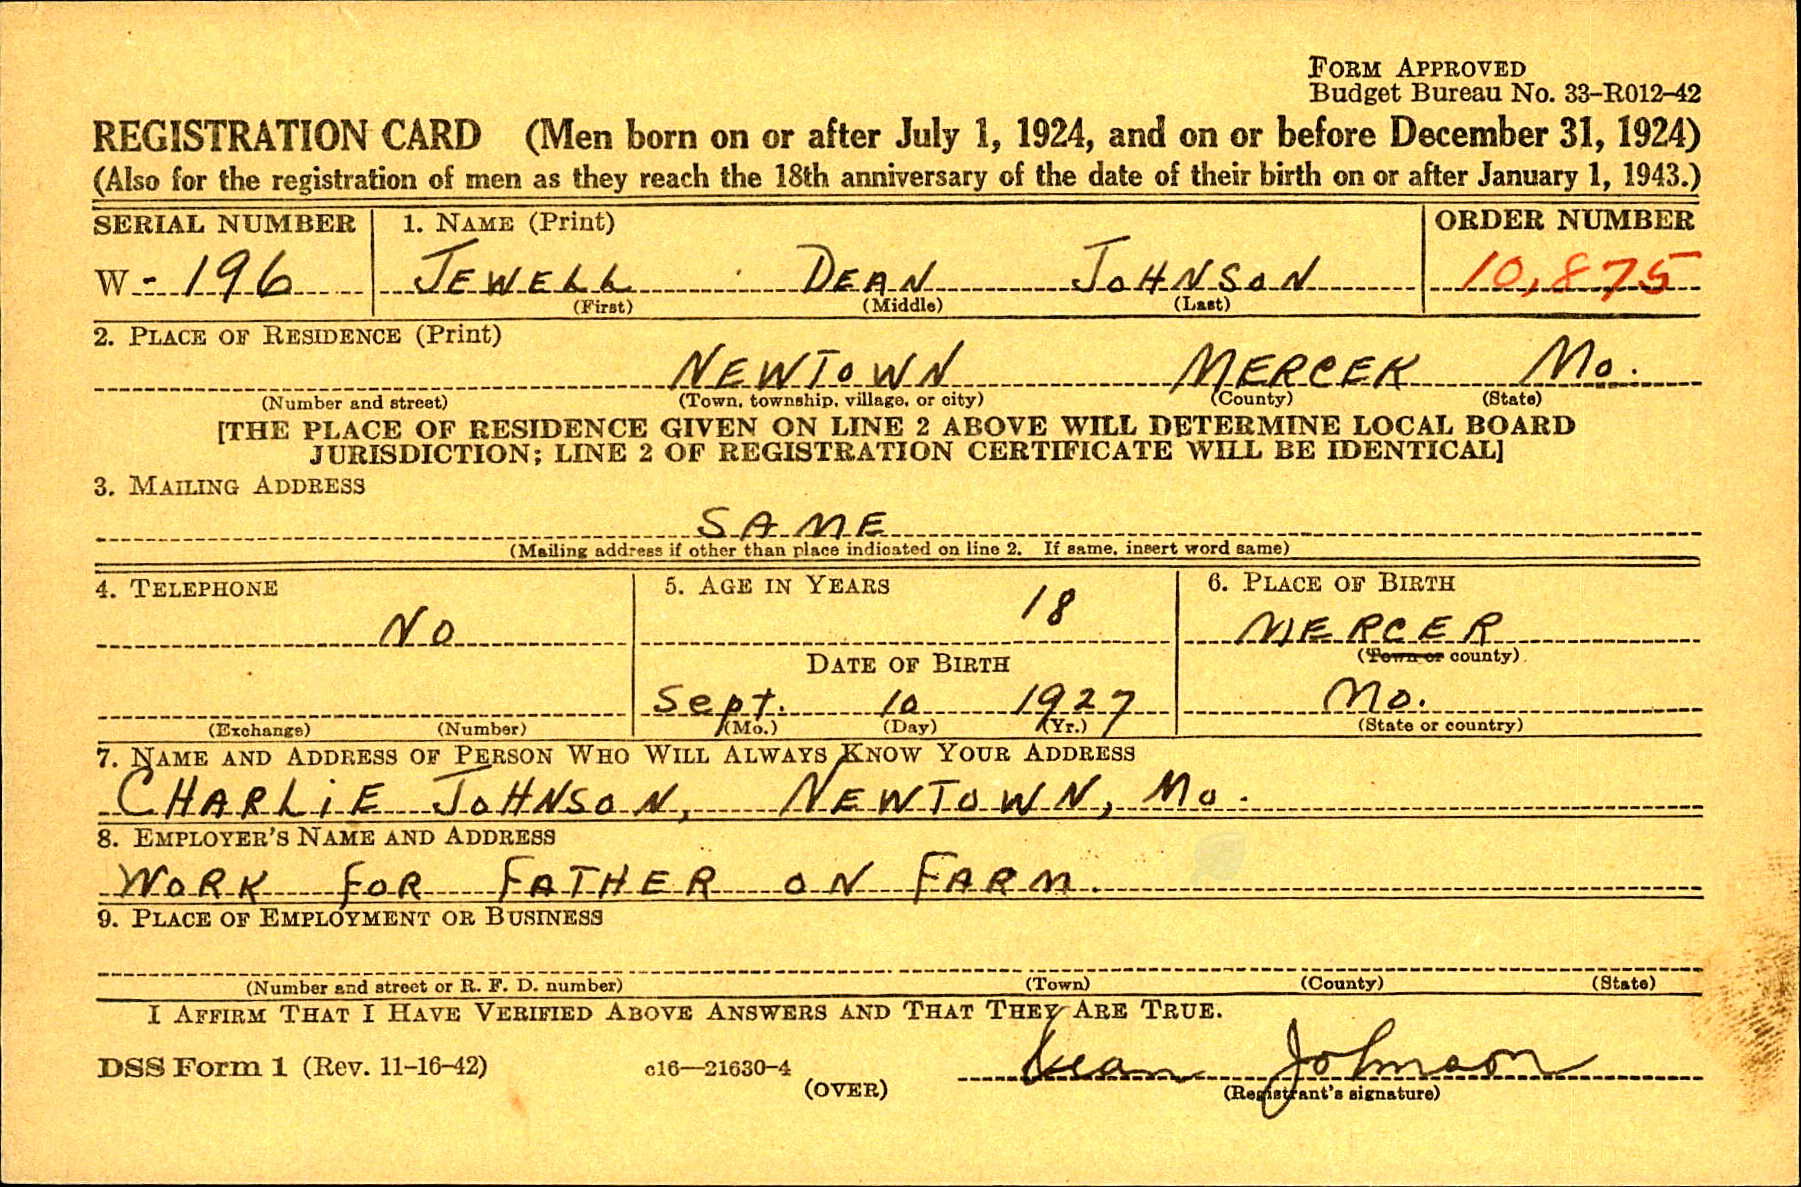 FORM APPROVED
Budget Bureau No. 33-R012-42
REGISTRATION CARD (Men born on or after July 1, 1924, and on or before December 31, 1924)
(Also for the registration of men as they reach the 18th anniversary of the date of their birth on or after January 1, 1943.)
SERIAL NUMBER 1. NAME (Print) ORDER NUMBER
W - 196 JEWELL DEAN JOHNSON 10,875
(First) (Middle) (Last)
2. PLACE OF RESIDENCE (Print)
NEWTOWN MERCER Mo.
(Number and street) (Town, township, village, or city) (County) (State)
[THE PLACE OF RESIDENCE GIVEN ON LINE 2 ABOVE WILL DETERMINE LOCAL BOARD
JURISDICTION; LINE 2 OF REGISTRATION CERTIFICATE WILL BE IDENTICAL]
3. MAILING ADDRESS
SAME
(Mailing address if other than place indicated on line 2. If same, insert word same)
4. TELEPHONE 5. AGE IN YEARS 6. PLACE OF BIRTH
NO 18 MERCER
(Town or county)
DATE OF BIRTH
Sept. 10 1927 Mo.
(Exchange) (Number) (Mo.) (Day) (Yr.) (State or country)
7. NAME AND ADDRESS OF PERSON WHO WILL ALWAYS KNOW YOUR ADDRESS
CHARLiE JOHNSON, NEWTOWN, Mo.
8. EMPLOYER'S NAME AND ADDRESS
WORK FOR FATHER ON FARM.
9. PLACE OF EMPLOYMENT OR BUSINESS
(Number and street or R. F. D. number) (Town) (County) (State)
I AFFIRM THAT I HAVE VERIFIED ABOVE ANSWERS AND THAT THEY ARE TRUE.
DSS Form 1 (Rev. 11-16-42) c16—21630-4 Dean Johnson
(OVER) (Registrant's signature)